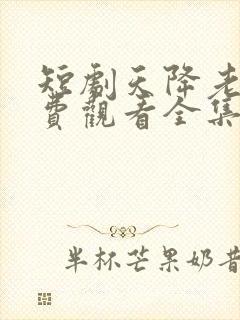 短劇天降老
費觀看全集
半杯芒果奶昔